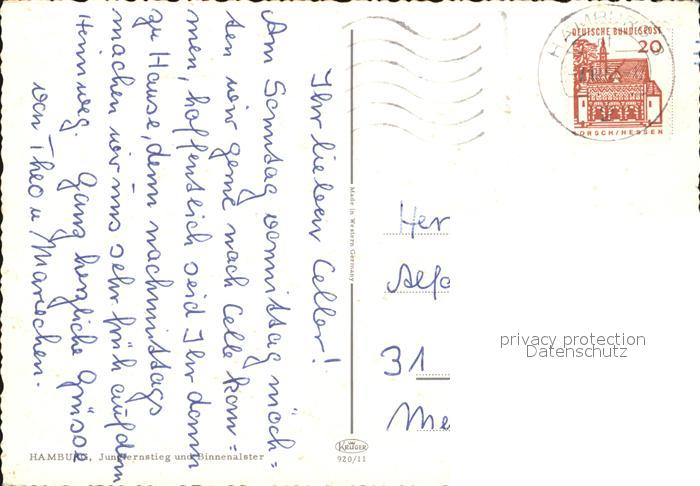 Ihr lieben Celler!
Am Sonntag vormittag möch=
ten wir gerne nach Celle kom=
men, hoffentlich seid Ihr dann
zu Hause, denn nachmittags
machen wir uns sehr früh auf dem
Heimweg. Ganz herzliche Grüsse
von Theo u. Mariechen.
HAMBURG, Jungfernstieg und Binnenalster
Made in Western Germany
KRÜGER
920/11
HAMBURG
DEUTSCHE BUNDESPOST
20
LORSCH/HESSEN
Her
Alfo
31
Me
privacy protection
Datenschutz